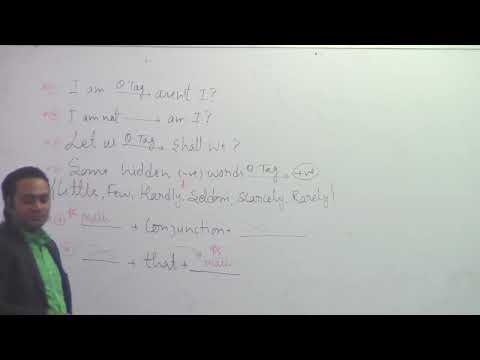 I am Q Tag aren't I?
I am not am I?
Let us Q Tag shall we?
Some hidden (-ve) words Q Tag +ve
(Little, Few, Hardly, Seldom, Scarcely, Rarely)
main + Conjunction +
+ that + main